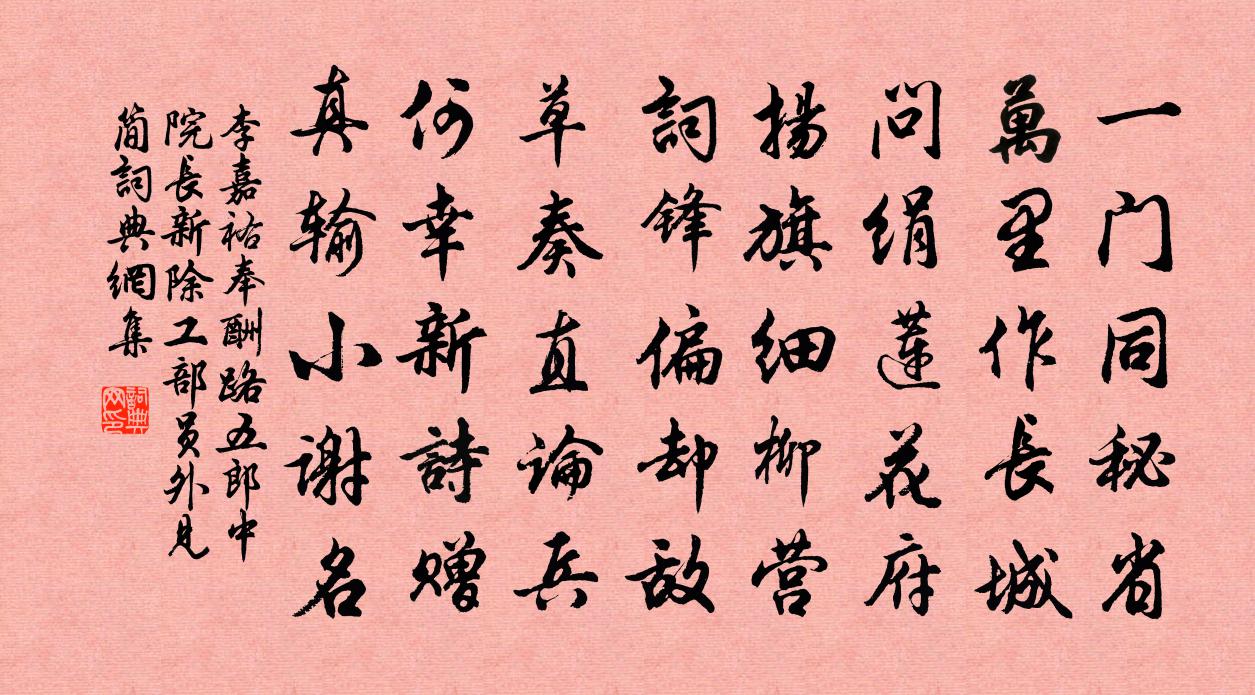 一门同秘省
萬里作長城
问绢莲花府
揚旗細柳营
詞锋偏却敌
草奏直論兵
何幸新詩赠
真输小谢名
李嘉祐奉酬路五郎中
院長新除工部员外見
简詞典網集
詞典
网印